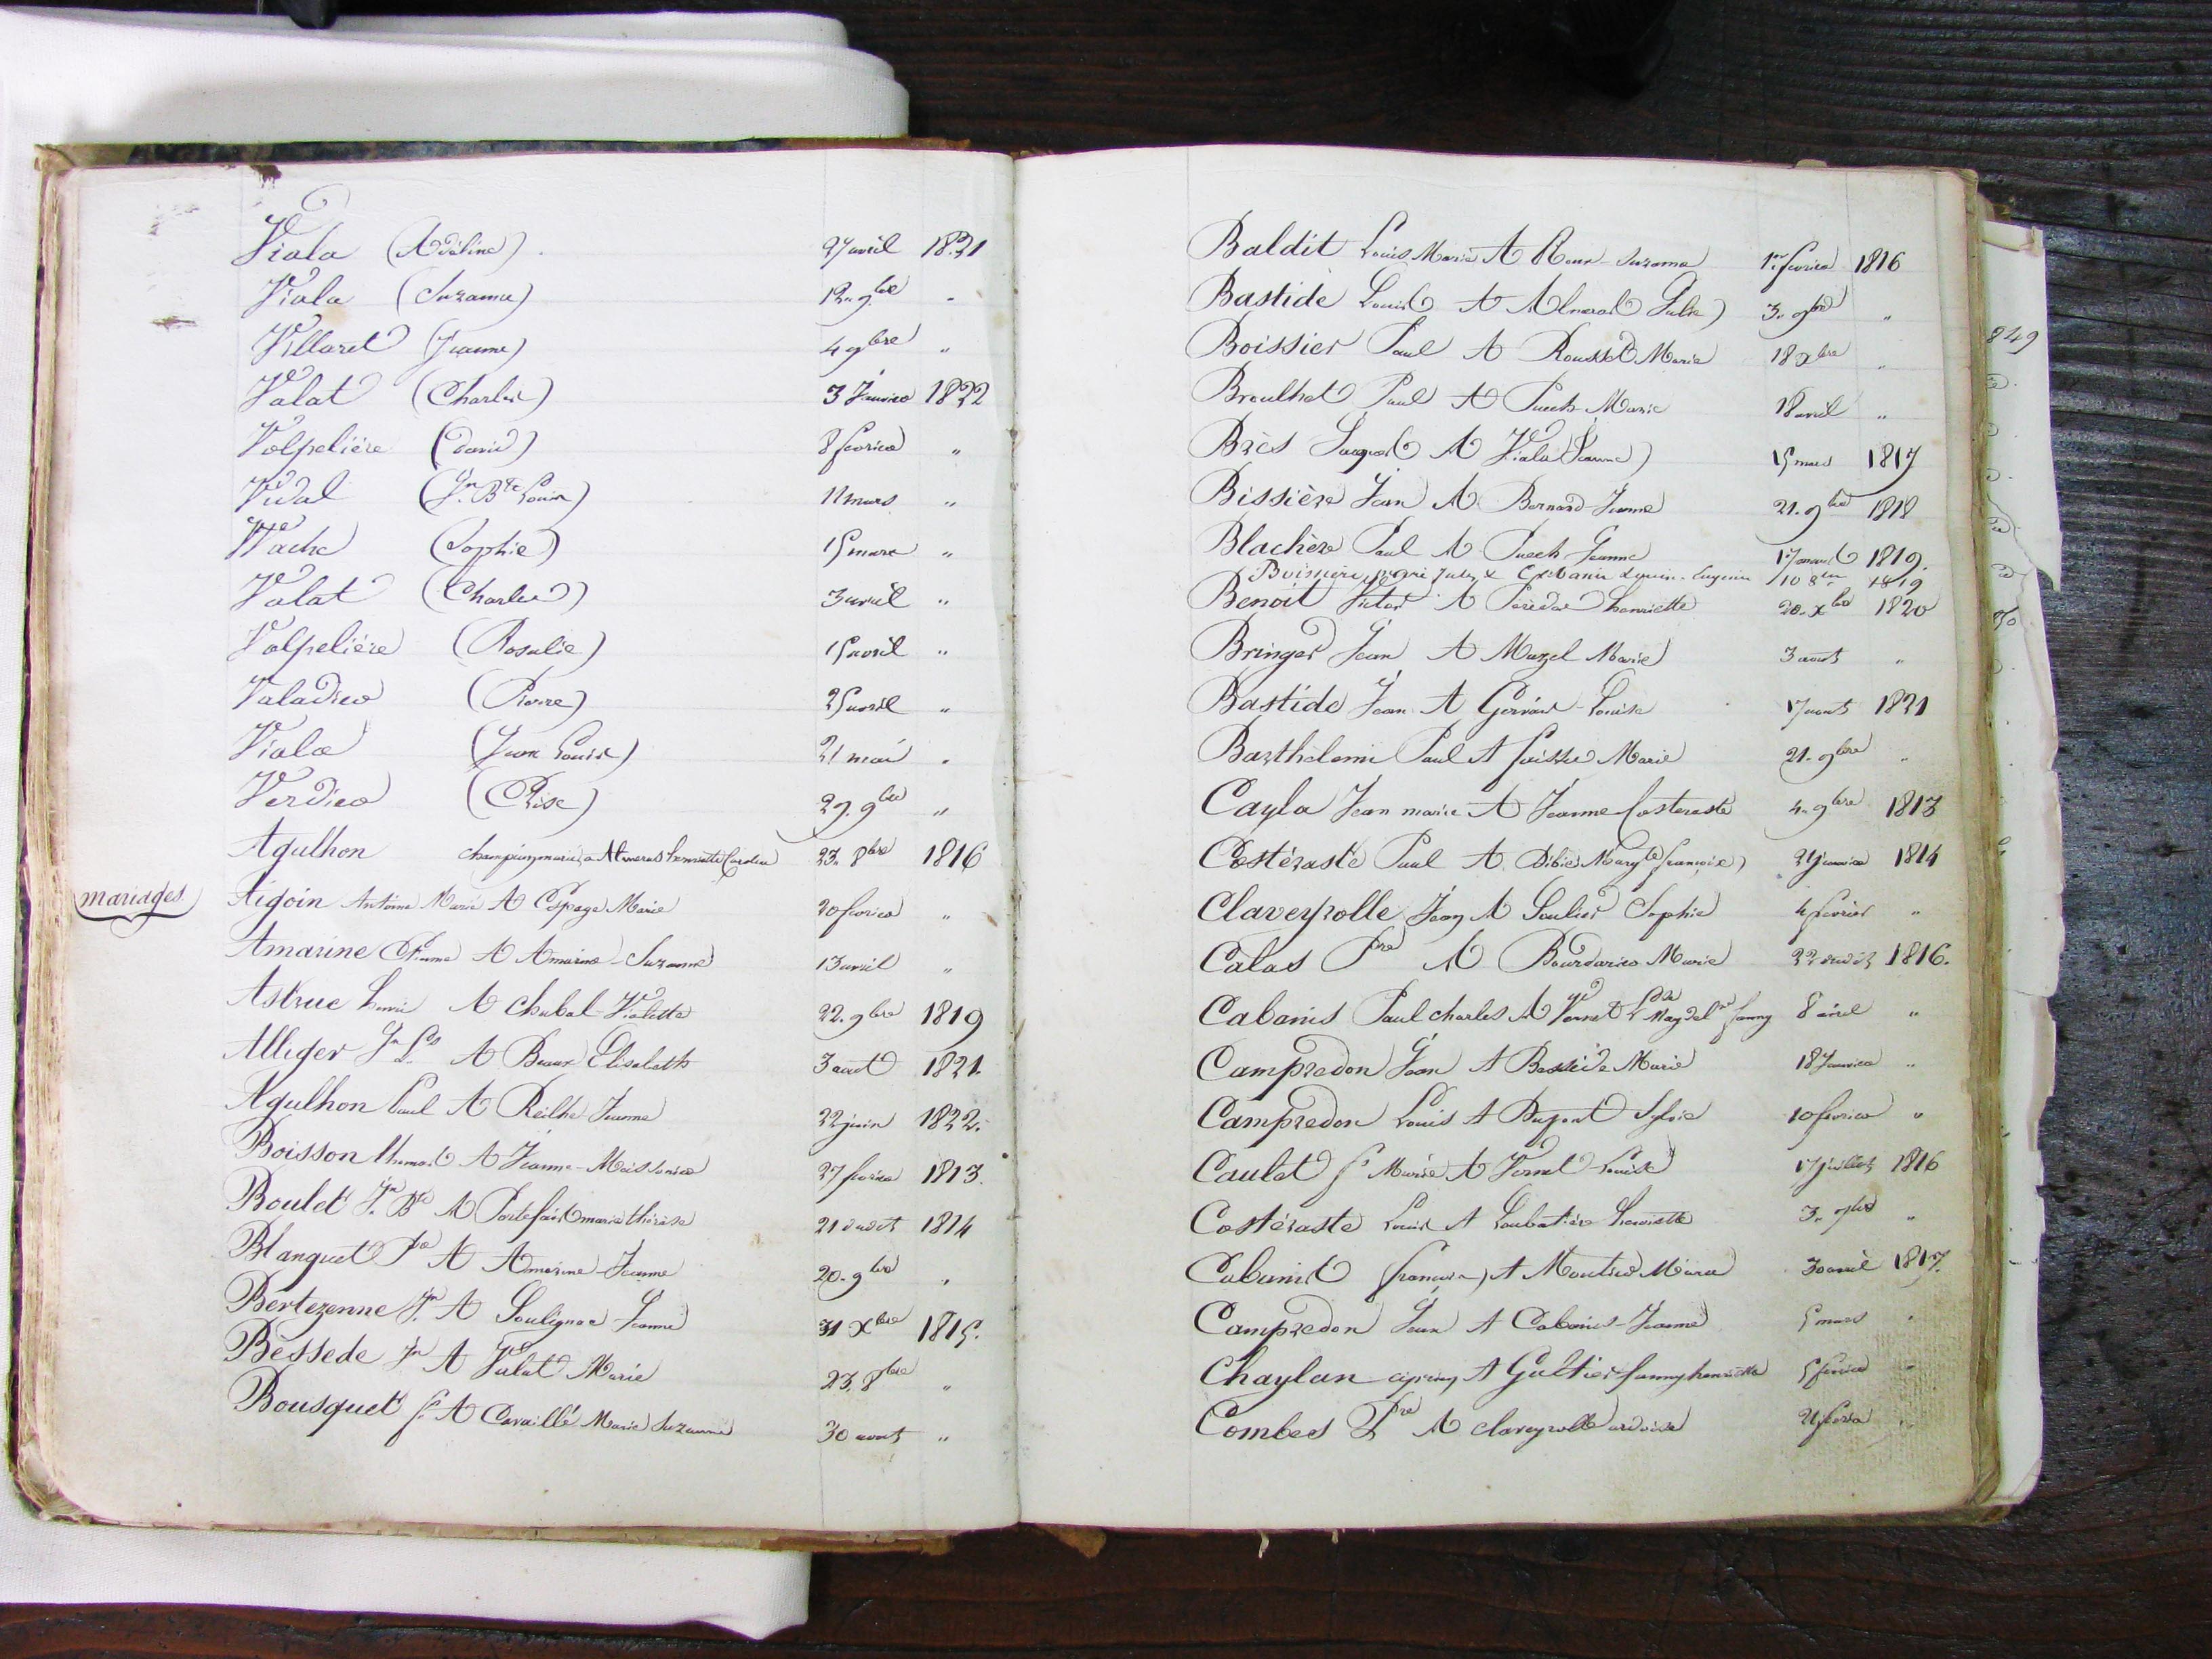 Viala (Adéline) 27 avril 1821
Viala (Suzanne) 12 9bre "
Villaret (Jeanne) 4 9bre "
Valat (Charles) 3 Janvier 1822
Volpelière (David) 8 fevrier "
Vidal (Jn Bte Louis) 11 mars "
Vache (Sophie) 15 mars "
Valat (Charles) 3 avril "
Volpelière (Rosalie) 15 avril "
Valadier (Pierre) 25 avril "
Viala (Jean Louis) 21 mai "
Verdier (Elise) 27. 9bre "
Agulhon a Almeras henriette 23. 8bre 1816
mariages
Aigoin Antoine Marie A Espaze Marie 20 fevrier "
Amarine Etienne A Amarine Suzanne 13 avril "
Astruc henri A Chabal Violette 22. 9bre 1819
Alliger Jn Ls A Beaux Elisabeth 3 aout 1821.
Agulhon Paul A Reilhe Jeanne 22 juin 1822.
Boisson A Jeanne Moissonier 27 fevrier 1813.
Boulet Jn Bte A Portefaix marie thérèse 21 1814
Blanquet A Amarine Jeanne 20. 9bre "
Bertezenne Jn A Soulignac Jeanne 31 Xbre 1815.
Bessede Jn A Valat Marie 23. 8bre "
Bousquet A Cavaillé Marie Suzanne 30 aout "
Baldit Louis Marie A Roux Suzanne 1er fevrier 1816
Bastide Louis A Almeras Julie 3. 9bre "
Boissier Paul A Rousset Marie 18 "
Breulhet Paul A Puech Marie 18 avril "
Brès Jacques A Viala Jeanne 15 mars 1817
Bissière Jean A Bernard Jeanne 21. 9bre 1818
Blachère Paul A Puech Jeanne 17 mars 1819.
Boissière Jules Eugenie 10 8bre 1819
Benoit Victor A henriette 20. Xbre 1820
Bringer Jean A Mazel Marie 3 aout "
Bastide Jean A Gervais Louise 17 aout 1821
Barthélemi Paul A Marie 21. 9bre "
Cayla Jean marie A Jeanne Costeraste 4. 9bre 1813
Costéraste Paul A françoise 1814
Claveyrolle Jean A Soulier Sophie 4 fevrier "
Calas Pre A Bourdarier Marie 22 1816.
Cabanis Paul charles A Vernet fanny 8 "
Campredon Jean A Bessede Marie 18 Janvier "
Campredon Louis A Dupont Sylvie 10 fevrier "
Caulet A Vernet Louise 17 juillet 1816
Costéraste Louis A Loubatière henriette 3. "
Cabanis françois A 30 avril 1817.
Campredon Jean A Cabanis Jeanne 5 mars "
Chaylan A Galtier fanny henriette 5 fevrier "
Combes Pre A claveyrolle "
849